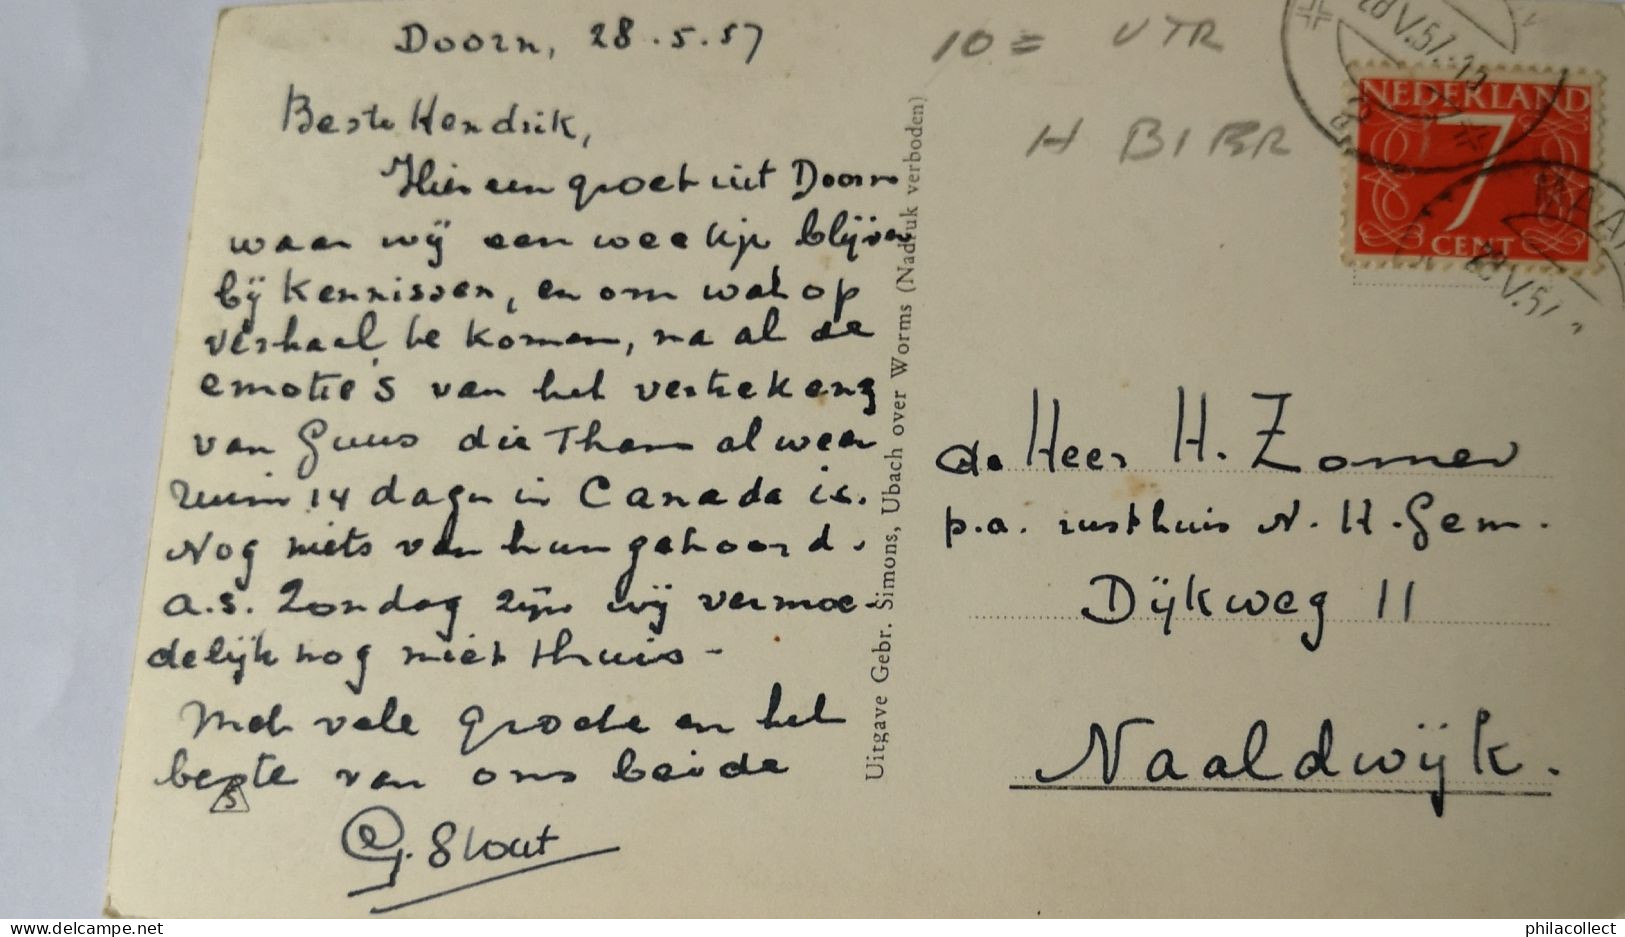 Doorn, 28.5.57
Beste Hendrik,
Hier een groet uit Doorn
waar wij een weekje blijven
bij kennissen, en om wat op
verhaal te komen, na al de
emotie's van het vertrek enz
van Guus die Thans al weer
ruim 14 dagen in Canada is.
Nog niets van hun gehoord.
a.s. Zondag zijn wij vermoe-
delijk nog niet thuis -
Met vele groete en het
beste van ons beide
G. Slout
S
Uitgave Gebr. Simons, Ubach over Worms (Nadruk verboden)
10= UTR
H BIBR
28 V.57
NEDERLAND
7
CENT
28 V.57
de Heer H. Zomer
p.a. rusthuis N.H. Gem.
Dijkweg 11
Naaldwijk.
philacollect